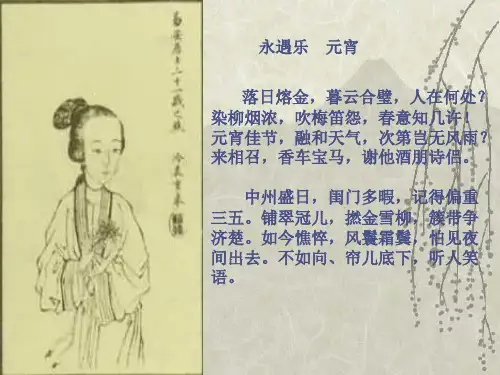 易安居士三十一歲之照
永遇乐　元宵
落日熔金，暮云合璧，人在何处？
染柳烟浓，吹梅笛怨，春意知几许！
元宵佳节，融和天气，次第岂无风雨？
来相召，香车宝马，谢他酒朋诗侣。
中州盛日，闺门多暇，记得偏重
三五。铺翠冠儿，撚金雪柳，簇带争
济楚。如今憔悴，风鬟霜鬓，怕见夜
间出去。不如向、帘儿底下，听人笑
语。